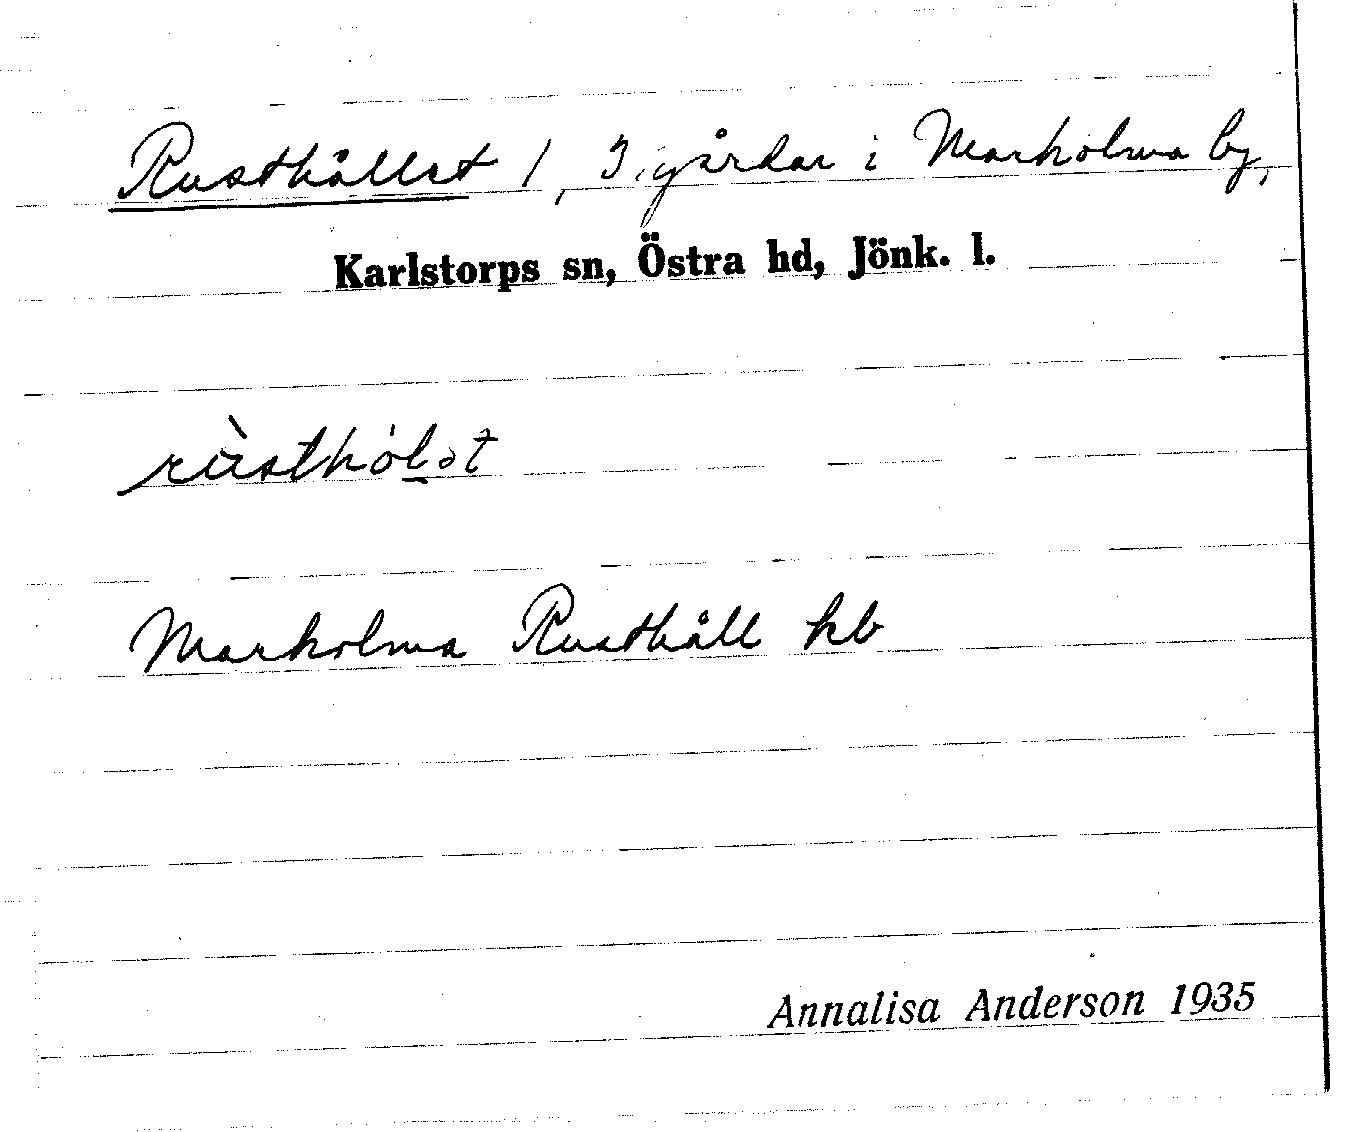 Rusthållet 1, 3 gårdar i Markolma by,
Karlstorps sn, Östra hd, Jönk. l.
rùsthòl̠ət
Markolma Rusthåll kb
Annalisa Anderson 1935